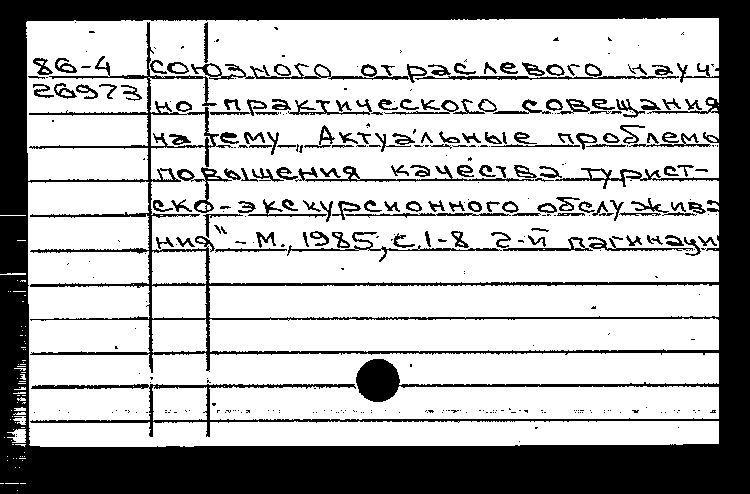 86-4 союзного отраслевого науч-
26973 но-практического совещания
на тему „Актуальные проблемы
повышения качества турист-
ско-экскурсионного обслужива
ния" - М., 1985, с. 1-8 2-й пагинаци